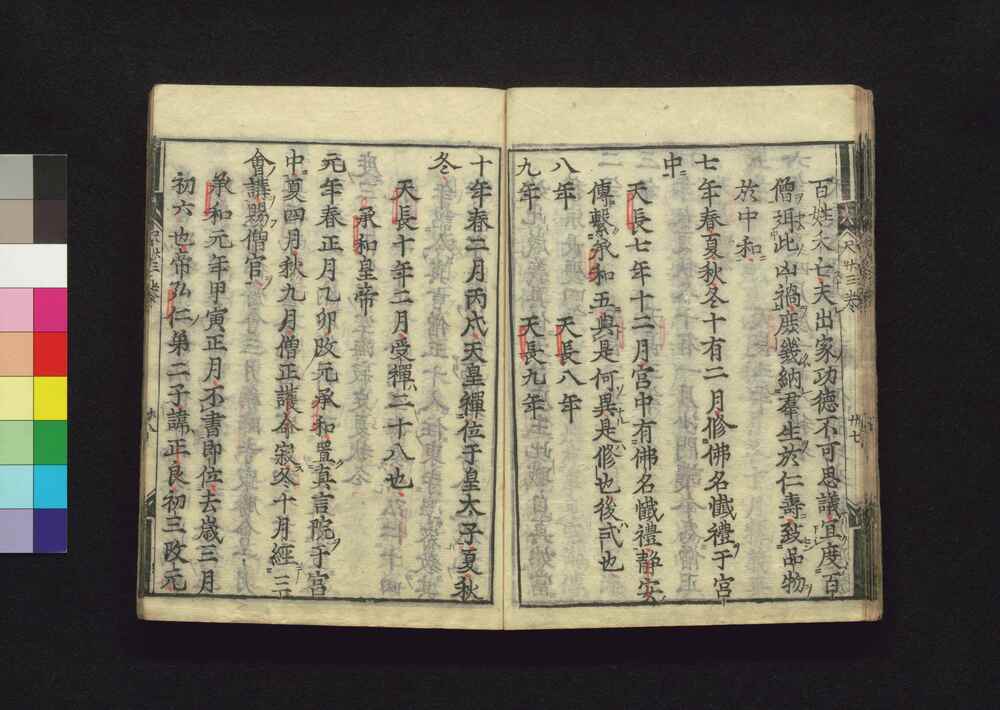 百姓、不亡、夫出家功德不可思議、宜度百
僧珥此凶禍、庶幾納羣生於仁壽、致品物
於中和、
七年春夏秋冬十有二月修佛名懺禮于宮
中
天長七年十二月、宮中有佛名懺禮、靜安
傳繫承和五、與是何異、是修也、後弍也
八年　天長八年
九年　天長九年
十年春二月丙戌、天皇禪位于皇太子夏秋
冬
天長十年二月、受禪、二十八也、
承和皇帝
元年春正月乙卯、改元承和、置眞言院于宮
中、夏四月秋九月僧正護命寂、冬十月經三
會講賜僧官、
承和元年甲寅正月、不書即位、去歲三月
初六也、帝弘仁第二子諱正良、初三改元
尺廿三卷
廿七
廿八